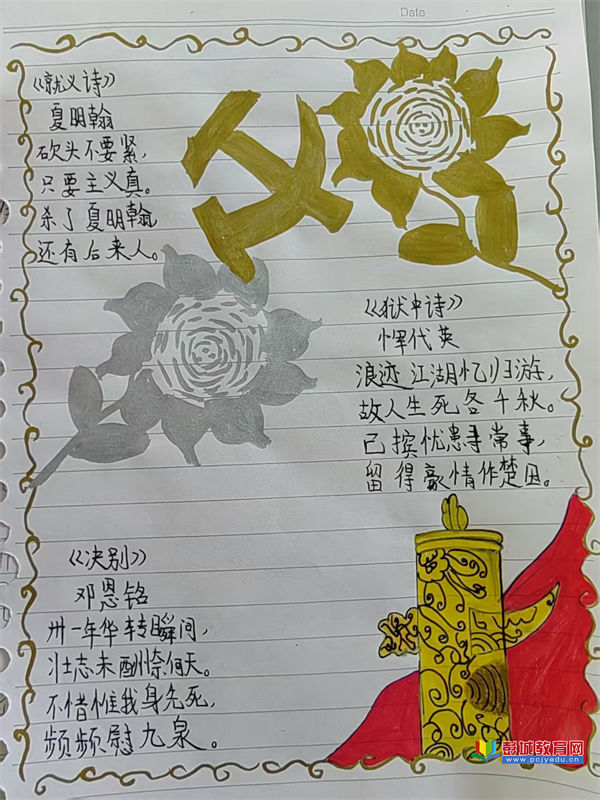 Date
《就义诗》
夏明翰
砍头不要紧，
只要主义真。
杀了夏明翰
还有后来人。
《狱中诗》
恽代英
浪迹江湖忆归游，
故人生死各千秋。
已摈忧患寻常事，
留得豪情作楚囚。
《决别》
邓恩铭
卅一年华转瞬间，
壮志未酬奈何天。
不惜惟我身先死，
频频慰九泉。
彭城教育网
www.pcjyedu.cn